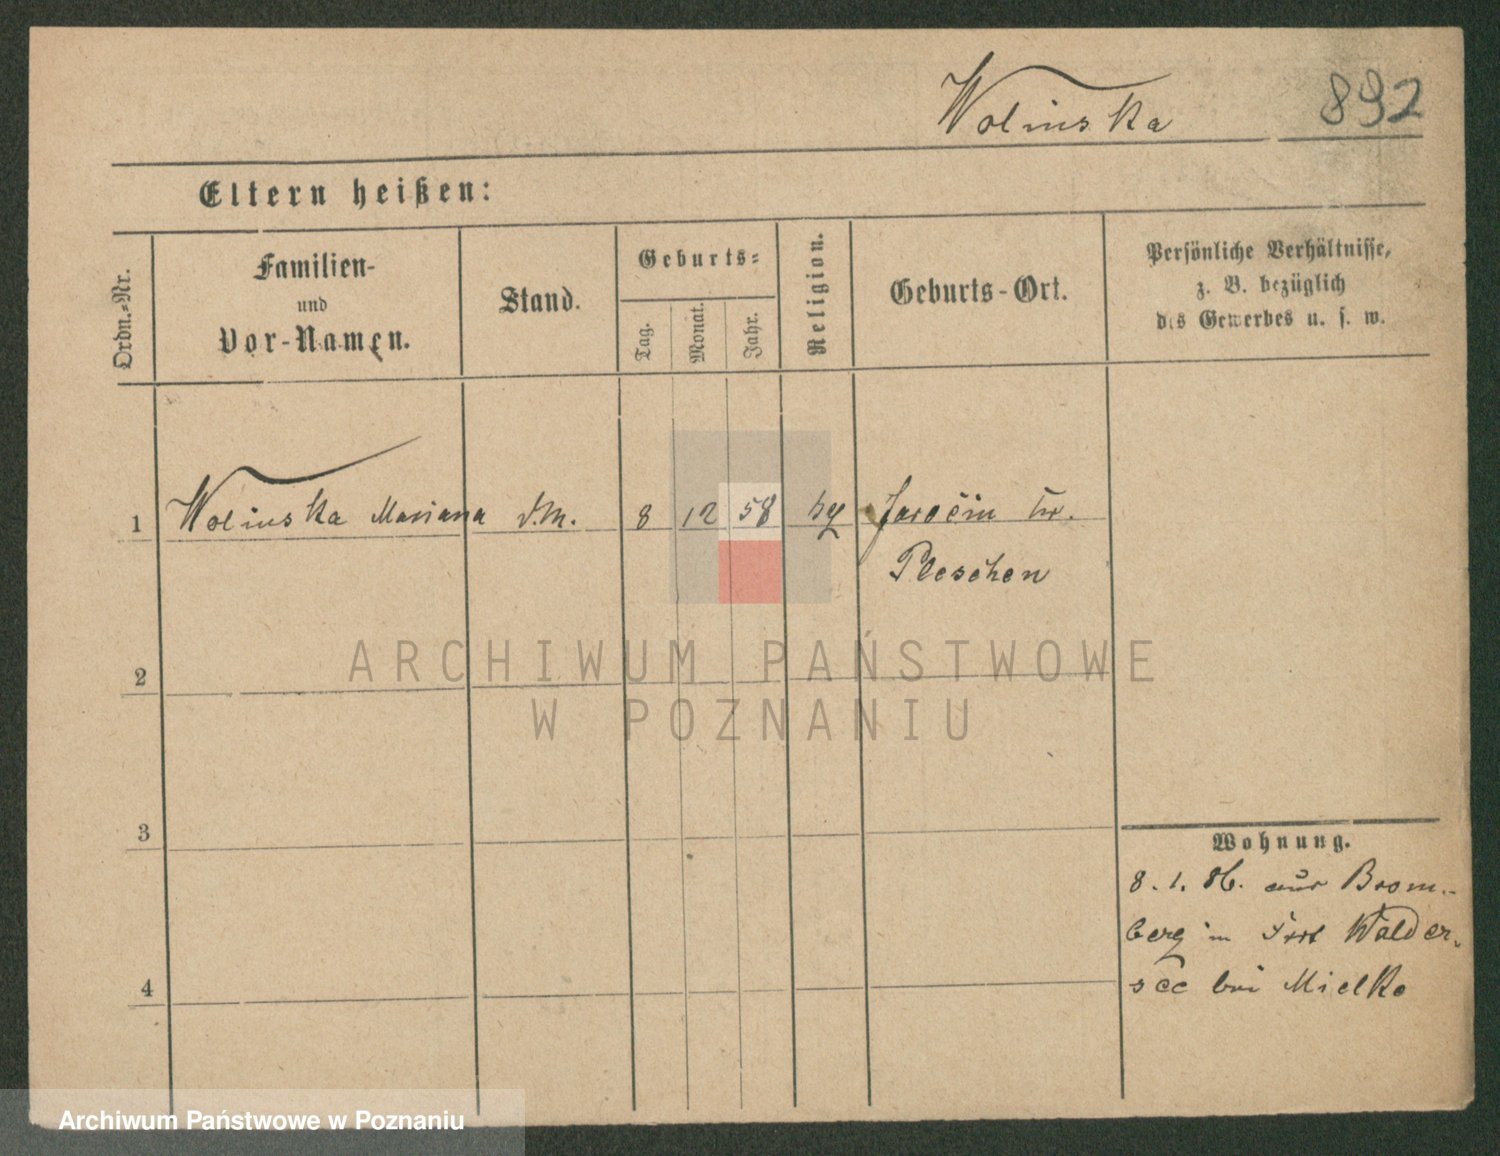 Wolinska 892
Eltern heißen:
Ordn.-Nr.
Familien-
und
Vor-Namen.
Stand.
Geburts-
Tag.
Monat.
Jahr.
Religion.
Geburts-Ort.
Persönliche Verhältnisse,
z. B. bezüglich
des Gewerbes u. s. w.
1 Wolinska Mariana d.M. 8 12 58 Jarocin Kr.
Pleschen
2
3
4
Wohnung.
8. 1. 86. aus Brom-
berg in Fort Walder-
see bei Mielke
ARCHIWUM PAŃSTWOWE
W POZNANIU
Archiwum Państwowe w Poznaniu